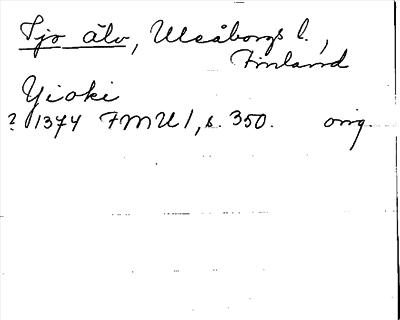 Ijo älv, Uleåborgs l.,
Finland
Yioki
? 1374 FMU 1, s. 350. orig.